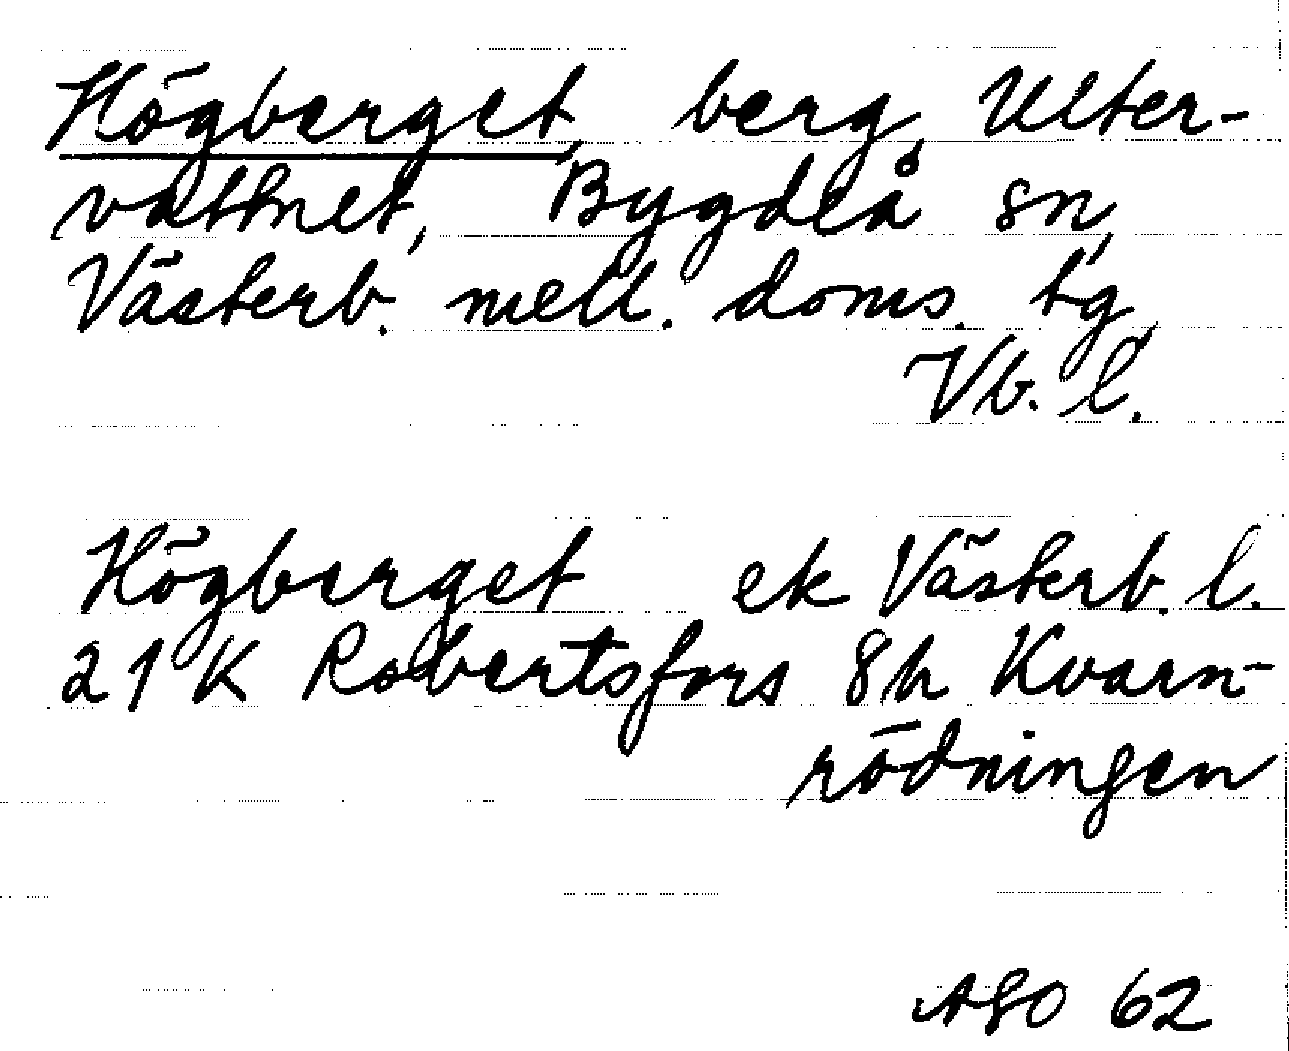 Högberget, berg, Ulter-
vattnet, Bygdeå sn,
Västerb. mell. doms. tg,
Vb. l.
Högberget ek Västerb. l.
21 K Robertsfors 8h Kvarn-
rödningen
AGO 62